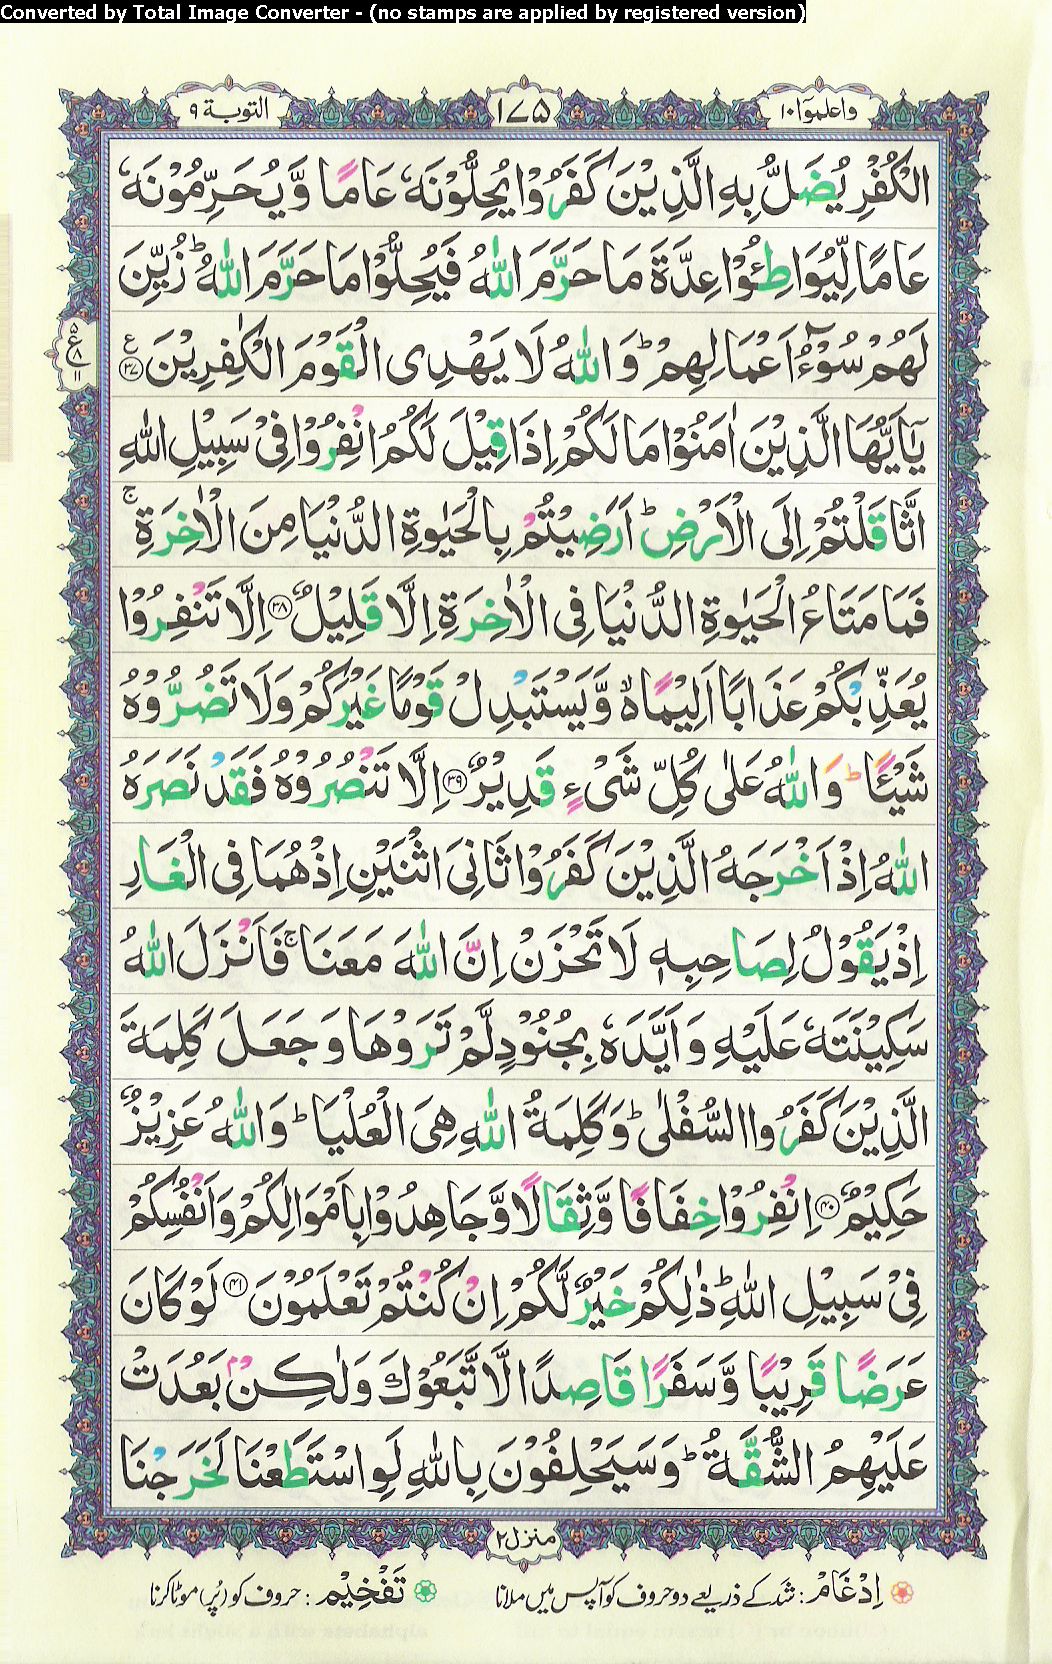 Converted by Total Image Converter - (no stamps are applied by registered version)
واعلموٓا ١٠
١٧٥
التوبة ٩
الْكُفْرِ يُضَلُّ بِهِ الَّذِيْنَ كَفَرُوْا يُحِلُّوْنَهٗ عَامًا وَّيُحَرِّمُوْنَهٗ
عَامًا لِّيُوَاطِـُٔوْا عِدَّةَ مَا حَرَّمَ اللّٰهُ فَيُحِلُّوْا مَا حَرَّمَ اللّٰهُ ؕ زُيِّنَ
لَهُمْ سُوْٓءُ اَعْمَالِهِمْ ؕ وَاللّٰهُ لَا يَهْدِى الْقَوْمَ الْكٰفِرِيْنَ ۝۳۷ ع
۵ ع ۸ ۱۱
يٰۤاَيُّهَا الَّذِيْنَ اٰمَنُوْا مَا لَكُمْ اِذَا قِيْلَ لَكُمُ انْفِرُوْا فِىْ سَبِيْلِ اللّٰهِ
اثَّاقَلْتُمْ اِلَى الْاَرْضِ ؕ اَرَضِيْتُمْ بِالْحَيٰوةِ الدُّنْيَا مِنَ الْاٰخِرَةِ ۚ
فَمَا مَتَاعُ الْحَيٰوةِ الدُّنْيَا فِى الْاٰخِرَةِ اِلَّا قَلِيْلٌ ۝۳۸ اِلَّا تَنْفِرُوْا
يُعَذِّبْكُمْ عَذَابًا اَلِيْمًا ۙ وَّيَسْتَبْدِلْ قَوْمًا غَيْرَكُمْ وَلَا تَضُرُّوْهُ
شَيْـًٔا ؕ وَاللّٰهُ عَلٰى كُلِّ شَىْءٍ قَدِيْرٌ ۝۳۹ اِلَّا تَنْصُرُوْهُ فَقَدْ نَصَرَهُ
اللّٰهُ اِذْ اَخْرَجَهُ الَّذِيْنَ كَفَرُوْا ثَانِىَ اثْنَيْنِ اِذْ هُمَا فِى الْغَارِ
اِذْ يَقُوْلُ لِصَاحِبِهٖ لَا تَحْزَنْ اِنَّ اللّٰهَ مَعَنَا ۚ فَاَنْزَلَ اللّٰهُ
سَكِيْنَتَهٗ عَلَيْهِ وَاَيَّدَهٗ بِجُنُوْدٍ لَّمْ تَرَوْهَا وَجَعَلَ كَلِمَةَ
الَّذِيْنَ كَفَرُوا السُّفْلٰى ؕ وَكَلِمَةُ اللّٰهِ هِىَ الْعُلْيَا ؕ وَاللّٰهُ عَزِيْزٌ
حَكِيْمٌ ۝۴۰ اِنْفِرُوْا خِفَافًا وَّثِقَالًا وَّجَاهِدُوْا بِاَمْوَالِكُمْ وَاَنْفُسِكُمْ
فِىْ سَبِيْلِ اللّٰهِ ؕ ذٰلِكُمْ خَيْرٌ لَّكُمْ اِنْ كُنْتُمْ تَعْلَمُوْنَ ۝۴۱ لَوْ كَانَ
عَرَضًا قَرِيْبًا وَّسَفَرًا قَاصِدًا لَّاتَّبَعُوْكَ وَلٰكِنْۢ بَعُدَتْ
عَلَيْهِمُ الشُّقَّةُ ؕ وَسَيَحْلِفُوْنَ بِاللّٰهِ لَوِ اسْتَطَعْنَا لَخَرَجْنَا
منزل ٢
اِدْغَامْ : شد کے ذریعے دو حروف کو آپس میں ملانا تَفْخِيْم : حروف کو (پُر) موٹا کرنا